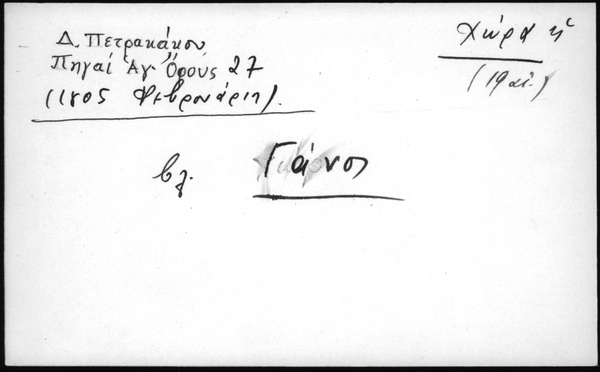 Δ. Πετρακάκου,
Πηγαί Ἁγ. Ὄρους 27
(1705 Φεβρουάριη).
Χώρα ἡ
(19 αἰ.)
βλ. Γάνος